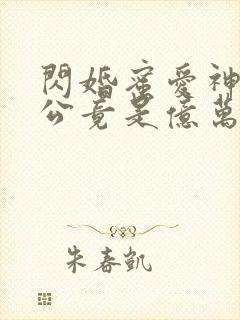 閃婚蜜愛神
公竟是億萬
朱春凱